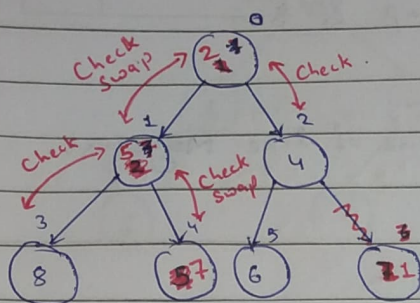 0
2
Check
swap
Check.
1
2
5
4
Check
Check
swap
3
4
5
8
7
6
1